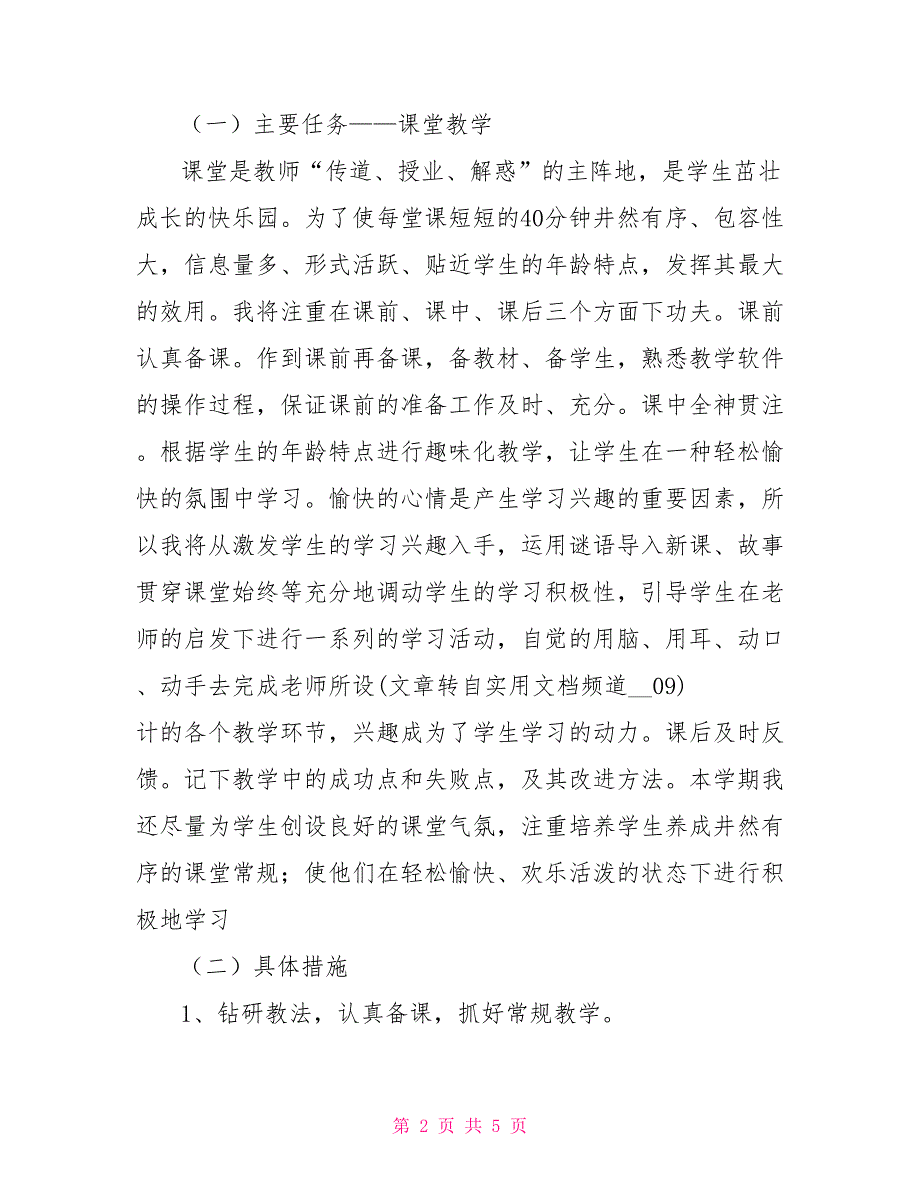 （一）主要任务——课堂教学
课堂是教师“传道、授业、解惑”的主阵地，是学生茁壮
成长的快乐园。为了使每堂课短短的40分钟井然有序、包容性
大，信息量多、形式活跃、贴近学生的年龄特点，发挥其最大
的效用。我将注重在课前、课中、课后三个方面下功夫。课前
认真备课。作到课前再备课，备教材、备学生，熟悉教学软件
的操作过程，保证课前的准备工作及时、充分。课中全神贯注
。根据学生的年龄特点进行趣味化教学，让学生在一种轻松愉
快的氛围中学习。愉快的心情是产生学习兴趣的重要因素，所
以我将从激发学生的学习兴趣入手，运用谜语导入新课、故事
贯穿课堂始终等充分地调动学生的学习积极性，引导学生在老
师的启发下进行一系列的学习活动，自觉的用脑、用耳、动口
、动手去完成老师所设(文章转自实用文档频道__09)
计的各个教学环节，兴趣成为了学生学习的动力。课后及时反
馈。记下教学中的成功点和失败点，及其改进方法。本学期我
还尽量为学生创设良好的课堂气氛，注重培养学生养成井然有
序的课堂常规；使他们在轻松愉快、欢乐活泼的状态下进行积
极地学习
（二）具体措施
1、钻研教法，认真备课，抓好常规教学。
第 2 页 共 5 页